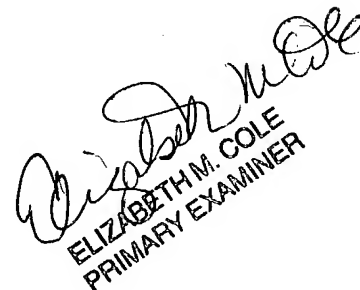 Elizabeth M. Cole
ELIZABETH M. COLE
PRIMARY EXAMINER